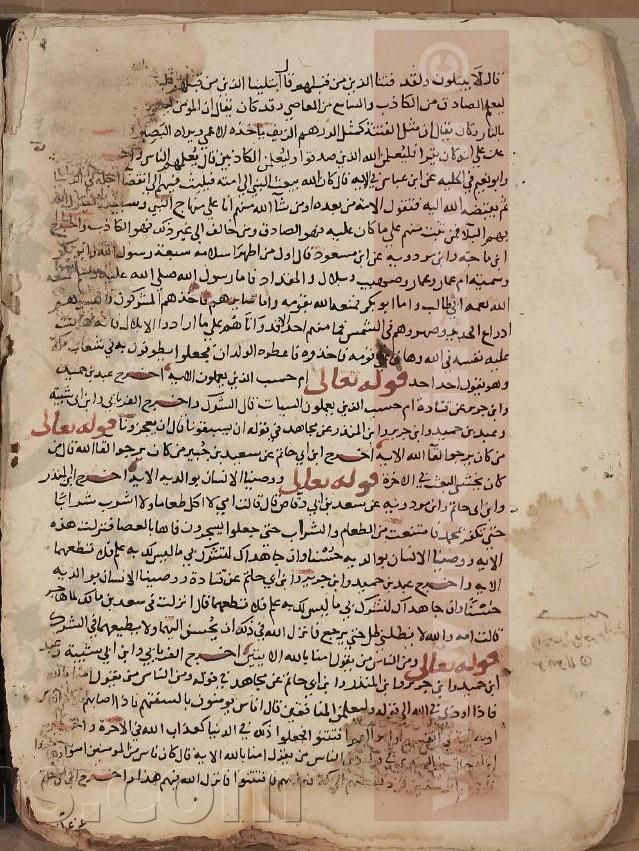 قال لا يبتلون ولقد فتنا الذين من قبلهم قال ابتلينا الذين من قبلهم
ليعلم الصادق من الكاذب والسامع من العاصي وقد كان يقال ان المومن
بالنار وكان يقال ان مثل الفتنة كمثل الدرهم الزيف ياخذه الاعمى ويراه البصير
عن علي انه كان يقرا فليعلمن الله الذين صدقوا وليعلمن الكاذبين قال يعلمهم الناس
وابو نعيم في الحلية عن ابن عباس في الاية قال كان الله يبعث النبي الى امته فيلبث فيهم الى انقضا اجله في الدنيا
ثم يقبضه الله اليه فتقول الامة من بعده او من شا الله منهم انا على منهاج النبي وسبيله
بهم البلا فمن ثبت منهم على ما كان عليه فهو الصادق ومن خالف الى غير ذلك فهو الكاذب واخرج
ابن ماجة وابن مردويه عن ابن مسعود قال اول من اظهر اسلامه سبعة رسول الله وابو بكر
وسمية ام عمار وعمار وصهيب وبلال والمقداد فاما رسول الله صلى الله عليه
الله بعمه ابي طالب واما ابو بكر فمنعه الله بقومه واما سايرهم فاخذهم المشركون فالبسوهم
ادراع الحديد وصهروهم في الشمس فما منهم احد الا وقد اتاهم على ما ارادوا الا بلال فانه هانت
عليه نفسه في الله وهان على قومه فاخذوه فاعطوه الولدان فجعلوا يطوفون به في شعاب مكة
وهو يقول احد احد قوله تعالى ام حسب الذين يعملون الاية اخرج عبد بن حميد
وابن جرير عن قتادة ام حسب الذين يعملون السيات قال الشرك واخرج الفريابي وابن ابي شيبة
وعبد بن حميد وابن جرير وابن المنذر عن مجاهد في قوله ان يسبقونا قال ان يعجزونا قوله تعالى
من كان يرجوا لقا الله الاية اخرج ابن ابي حاتم عن سعيد بن جبير من كان يرجوا لقا الله قال من
كان يخشى البعث في الاخرة قوله تعالى ووصينا الانسان بوالديه الاية اخرج ابن المنذر
وابن ابي حاتم وابن مردويه عن سعد بن ابي وقاص قال قالت امي لا اكل طعاما ولا اشرب شرابا
حتى تكفر بمحمد فامتنعت من الطعام والشراب حتى جعلوا يسجرون فاها بالعصا فنزلت هذه
الاية ووصينا الانسان بوالديه حسنا وان جاهداك لتشرك بي ما ليس لك به علم فلا تطعهما
الاية واخرج عبد بن حميد وابن جرير وابن ابي حاتم عن قتادة ووصينا الانسان بوالديه
حسنا وان جاهداك لتشرك بي ما ليس لك به علم فلا تطعهما قال انزلت في سعد بن مالك لما هاجر
قالت امه والله لا يظلني ظل حتى يرجع فانزل الله في ذلك ان يحسن اليهما ولا يطيعهما في الشرك
قوله تعالى ومن الناس من يقول امنا بالله الايتين اخرج الفريابي وابن ابي شيبة و
ابن حميد وابن جرير وابن المنذر وابن ابي حاتم عن مجاهد في قوله ومن الناس من يقول
فاذا اوذي في الله الى قوله وليعلمن المنافقين قال اناس يومنون بالسنتهم فاذا اصابهم
فتنوا فجعلوا ذلك في الدنيا كعذاب الله في الاخرة واخرج
الناس من يقول امنا بالله الاية قال كان ناس من المومنين
فتنوا فانزل الله فيهم هذا واخرج